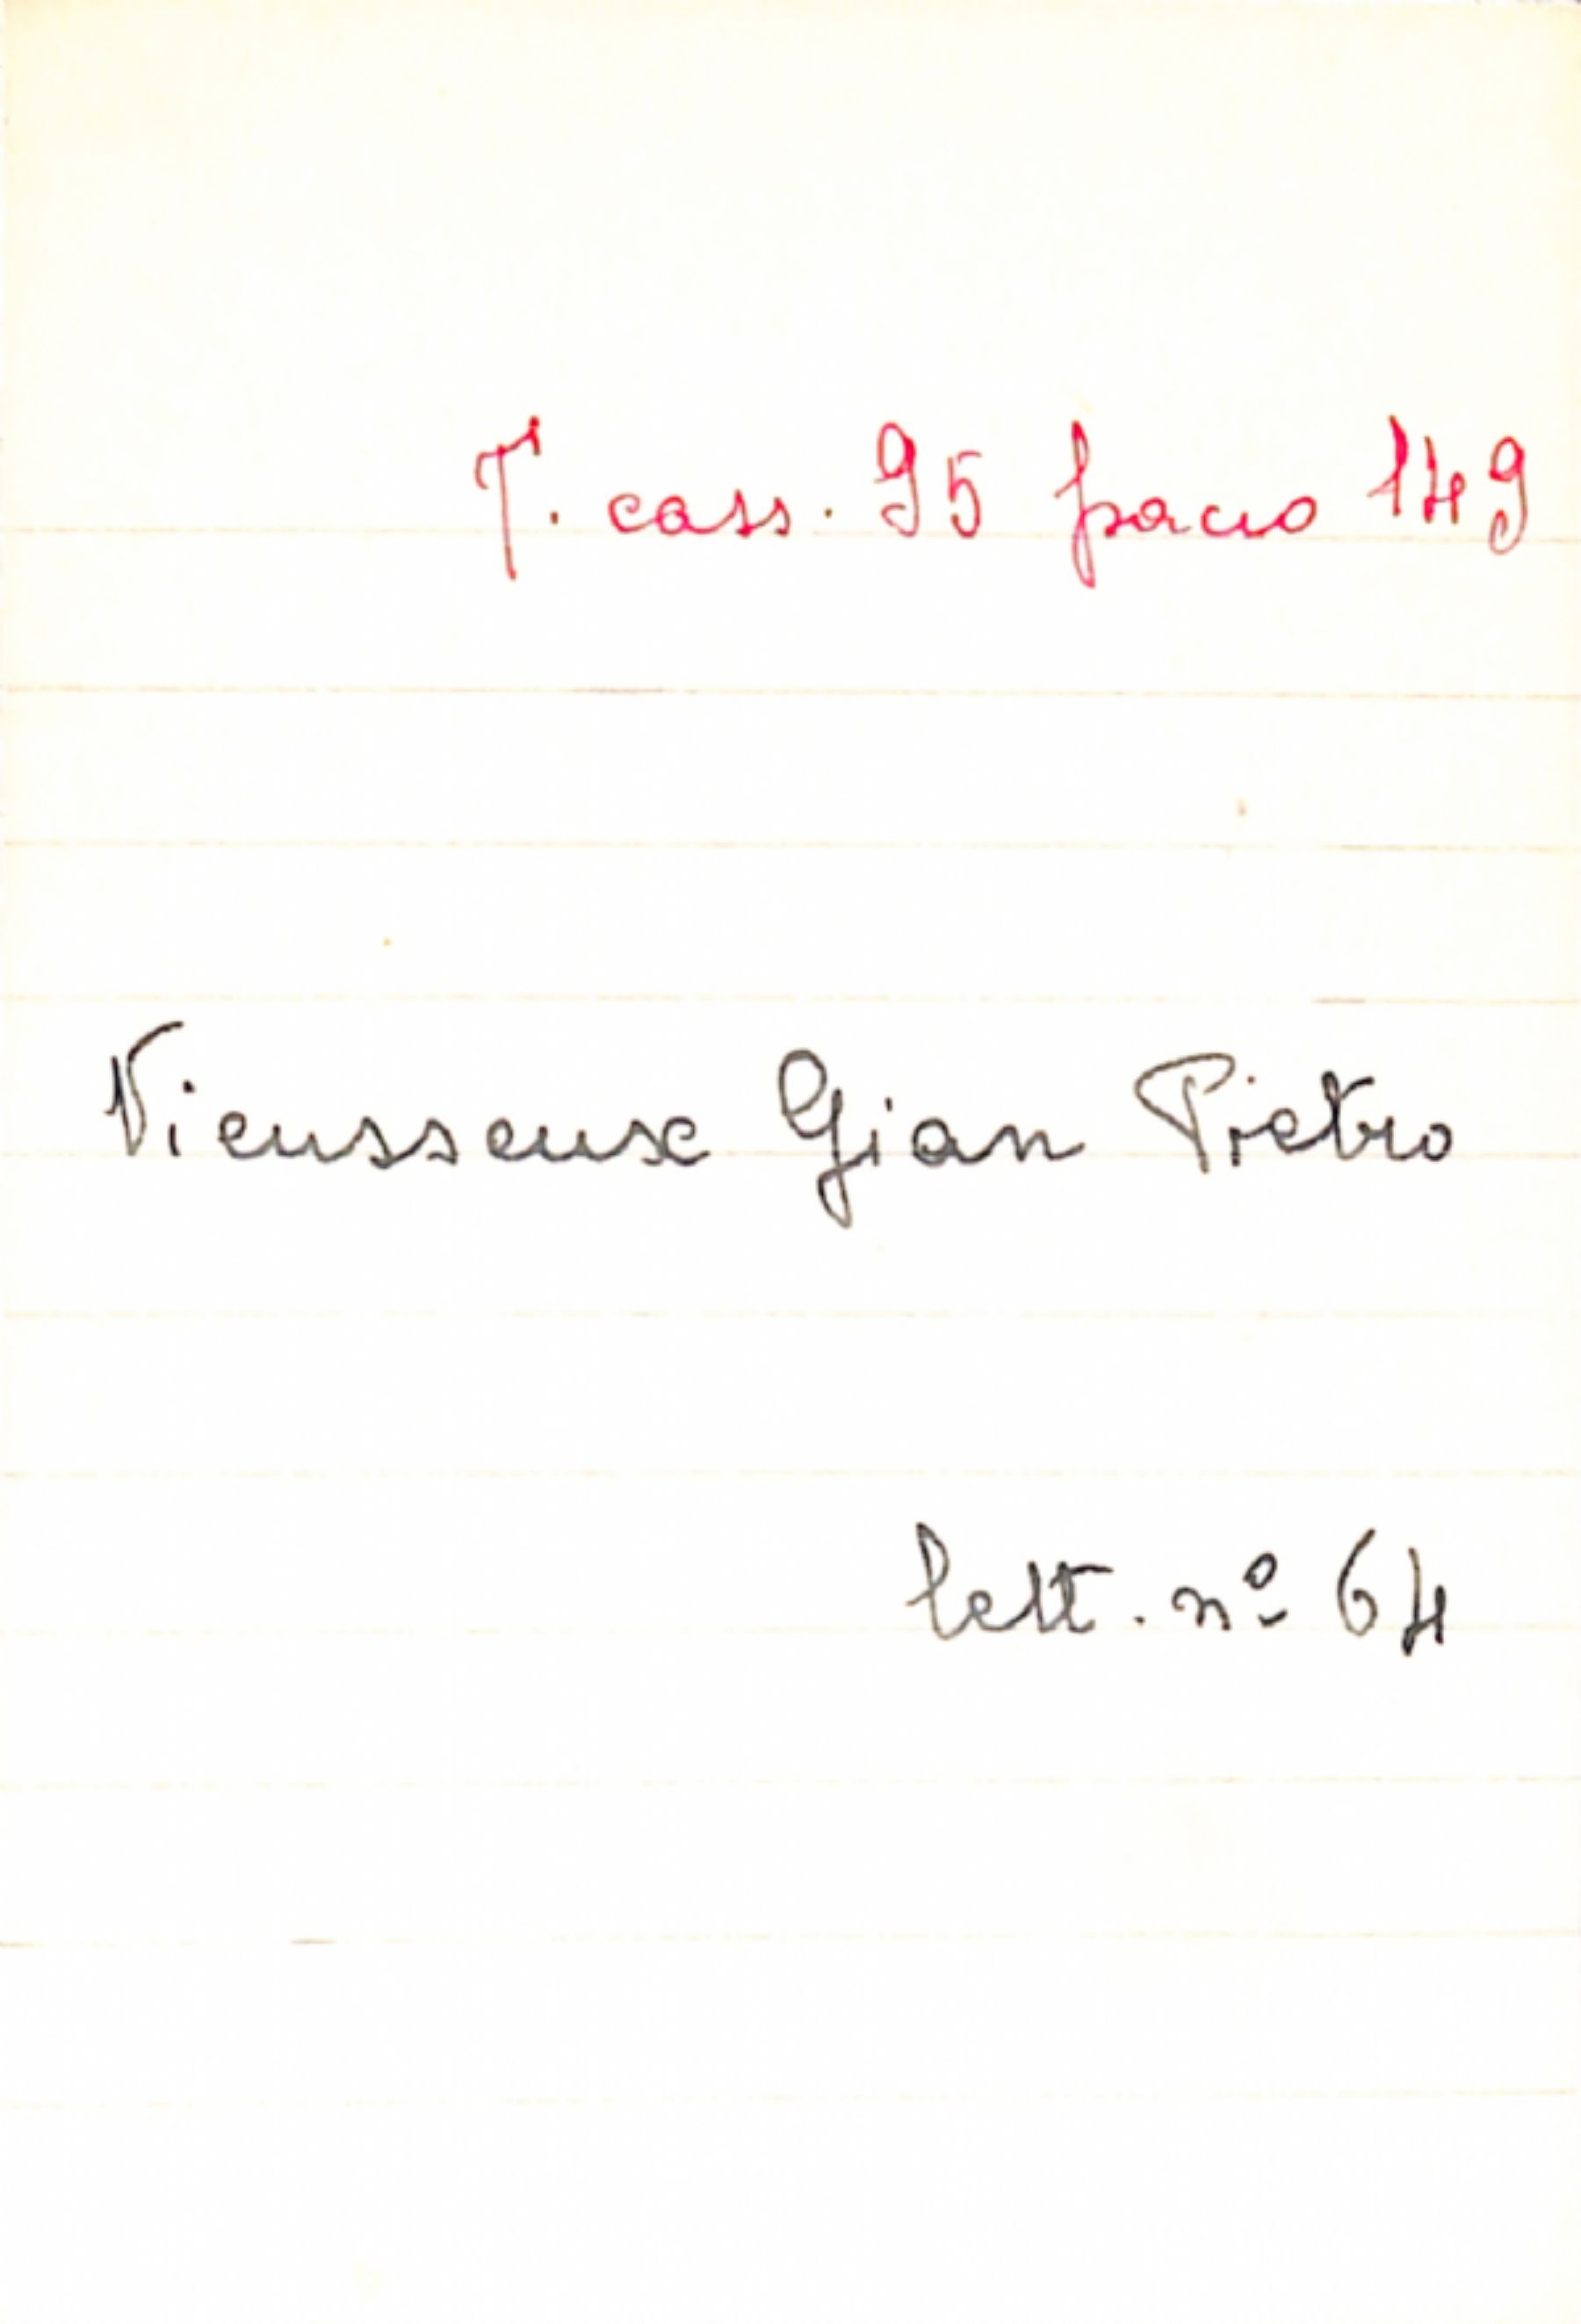 T. cass. 95 pacco 149
Vieusseux Gian Pietro
lett. nº 64